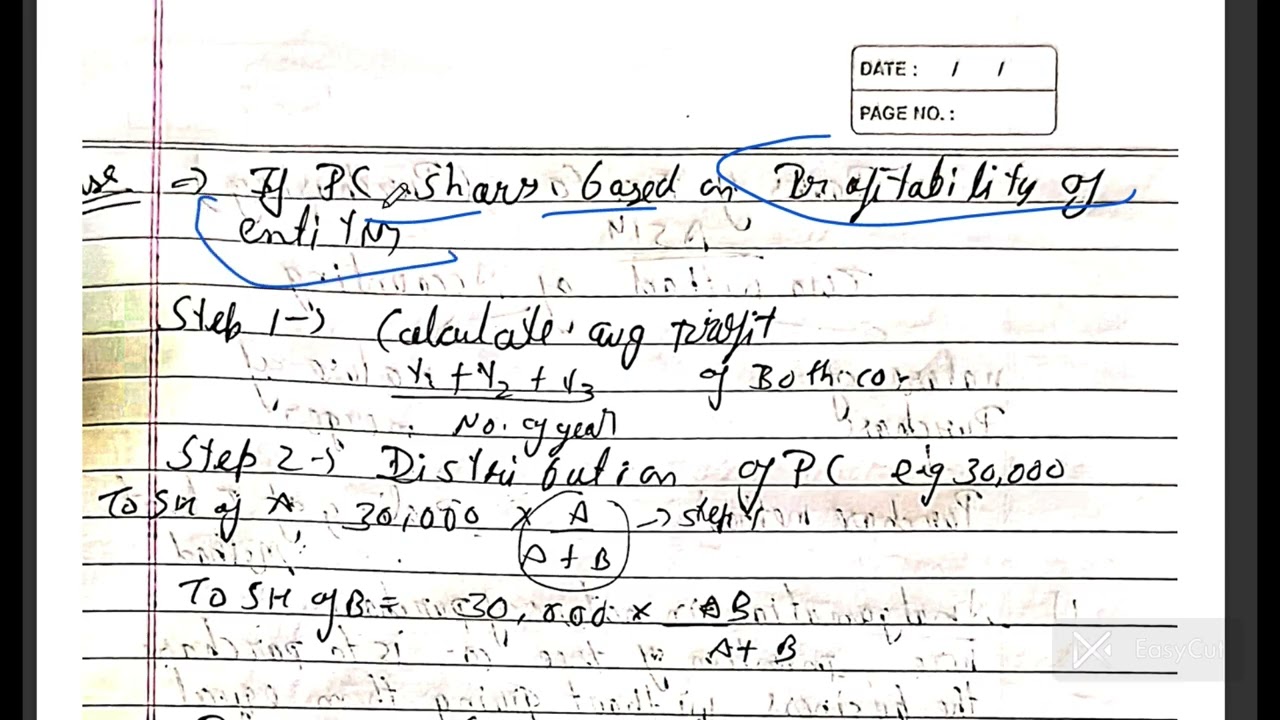 DATE : / /
PAGE NO. :
⇒ If PC shares based on Profitability of
entity
Step 1 → Calculate avg Profit
Y1 + Y2 + Y3 of Both co.
No. of year
Step 2 → Distribution of PC e.g 30,000
To SH of A 30,000 × A → step 1
A + B
To SH of B = 30,000 × B
A + B
EasyCut